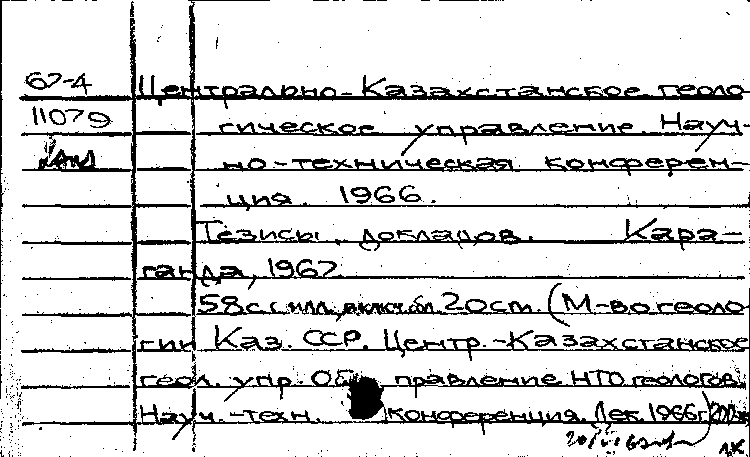 67-4 Центрально-Казахстанское геоло-
11079 гическое управление. Науч-
но-техническая конферен-
ция. 1966.
Тезисы докладов. Кара-
ганда, 1967.
58с. с илл., включ. обл. 20см. (М-во геоло-
гии Каз. ССР. Центр.-Казахстанское
геол. упр. правление НТО геологов.
Науч.-техн. конференция. Дек. 1966г.)